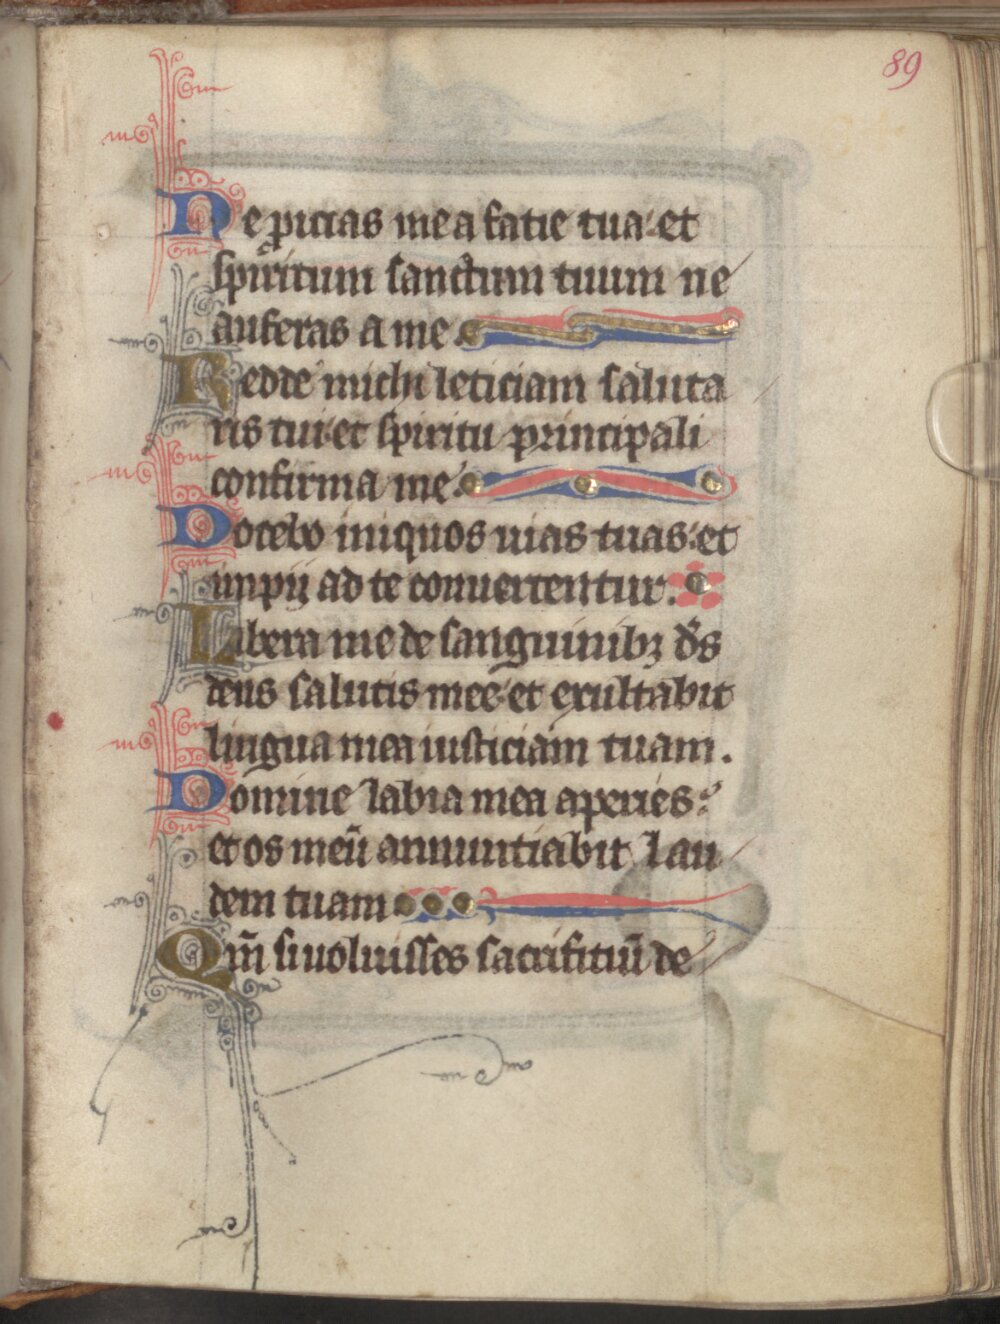 89
Ne ꝓicias me a facie tua· et
spiritum sanctum tuum ne
auferas a me
Redde michi leticiam saluta
ris tui· et spiritu principali
confirma me·
Docebo iniquos uias tuas· et
impij ad te conuertentur.
Libera me de sanguinibꝫ d̄s
deus salutis mee· et exultabit
lingua mea iusticiam tuam.
Domine labia mea aperies·
et os meū annuntiabit lau
dem tuam
Qm̄ si uoluisses sacrifitiū de